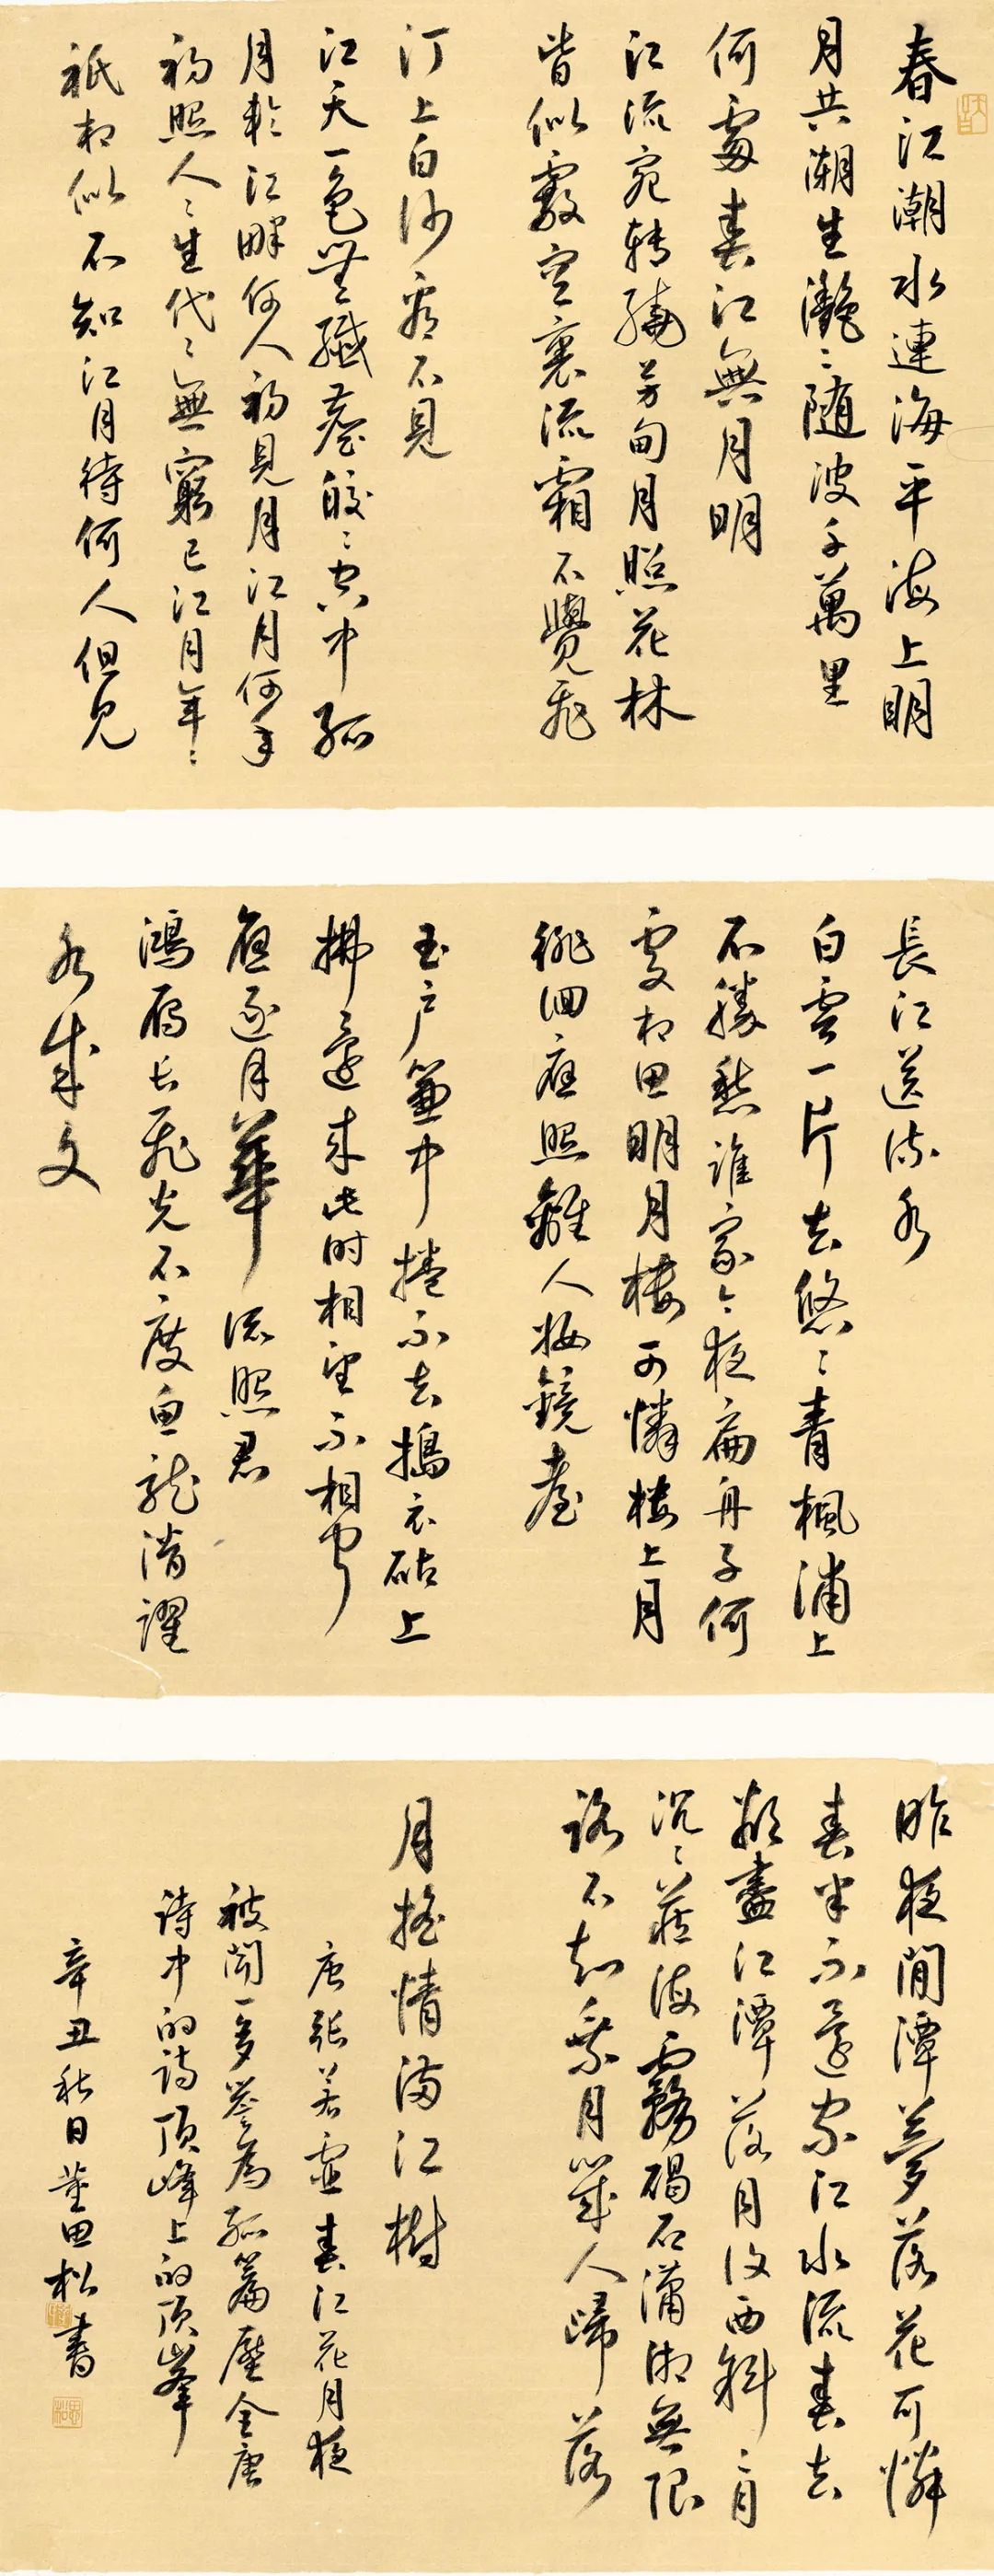 春江潮水連海平海上明
月共潮生灧〻随波千萬里
何處春江無月明
江流宛转繞芳甸月照花林
皆似霰空裏流霜不覺飛
汀上白沙看不見
江天一色無纖塵皎〻空中孤
月輪江畔何人初見月江月何年
初照人〻生代〻無窮已江月年〻
祇相似不知江月待何人但見
長江送流水
白雲一片去悠〻青楓浦上
不勝愁誰家今夜扁舟子何
處相思明月樓可憐樓上月
徘徊應照離人妝鏡臺
玉户簾中捲不去搗衣砧上
拂還來此時相望不相聞
願逐月華流照君
鴻雁长飛光不度魚龍潛躍
水成文
昨夜閒潭夢落花可憐
春半不還家江水流春去
欲盡江潭落月復西斜〻月
沉〻藏海霧碣石瀟湘無限
路不知乘月幾人歸落
月摇情滿江樹
唐張若虛春江花月夜
被聞一多譽為孤篇壓全唐
詩中的詩頂峰上的頂峯
辛丑秋日董思松書